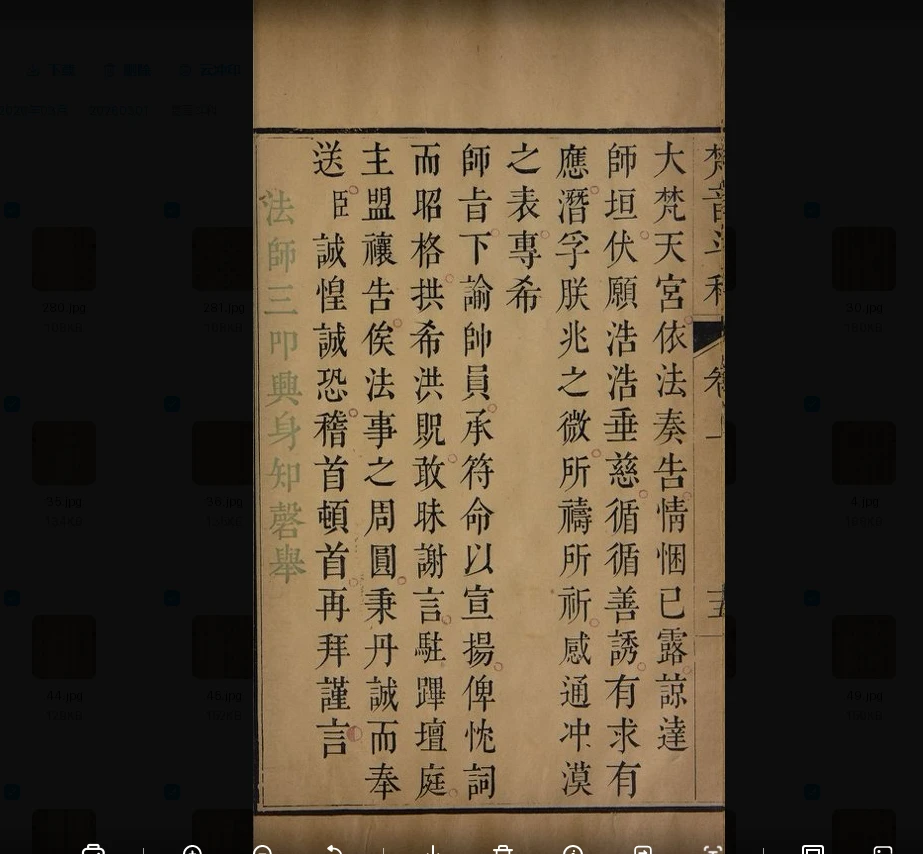 梵音斗科 卷一 十五
大梵天宮依法奏告情悃已露諒達
師垣伏願浩浩垂慈循循善誘有求有
應潛孚朕兆之微所禱所祈感通冲漠
之表專希
師旨下諭帥員承符命以宣揚俾忱詞
而昭格拱希洪貺敢昧謝言駐蹕壇庭
主盟禳告俟法事之周圓秉丹誠而奉
送臣誠惶誠恐稽首頓首再拜謹言
法師三叩興身知磬舉
280.jpg
281.jpg
30.jpg
35.jpg
36.jpg
4.jpg
44.jpg
46.jpg
49.jpg